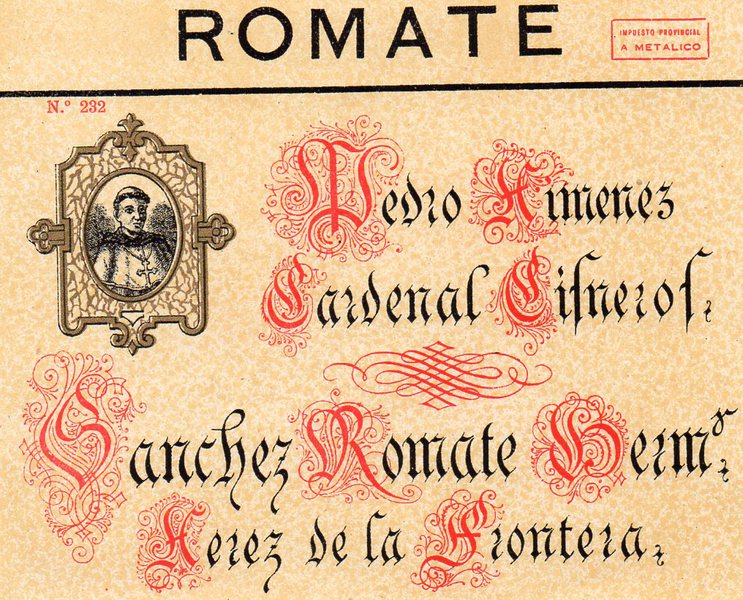 ROMATE
IMPUESTO PROVINCIAL
A METALICO
N.º 232
Pedro Ximenez
Cardenal Cisneros.
Sanchez Romate Hermos.
Xerez de la Frontera.